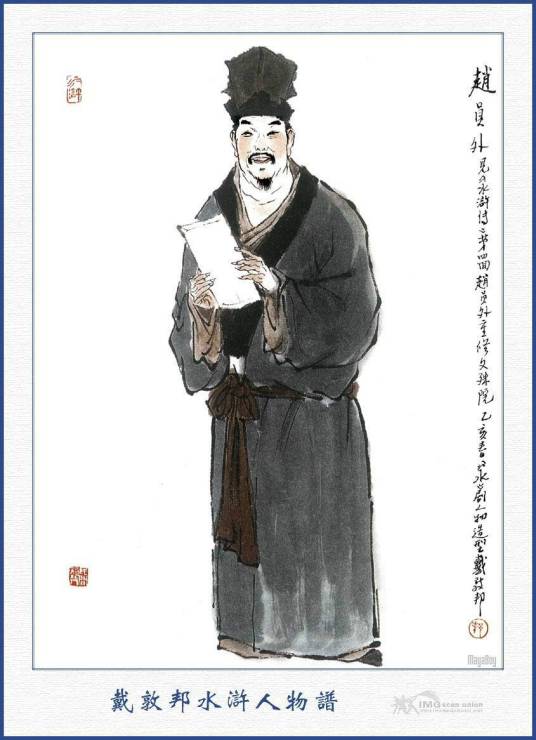 趙員外 見《水滸傳》第四回趙員外重修文殊院 乙亥春 泉劇人物造型 戴敦邦
MayaBoy
戴敦邦水滸人物譜
IMG scan union